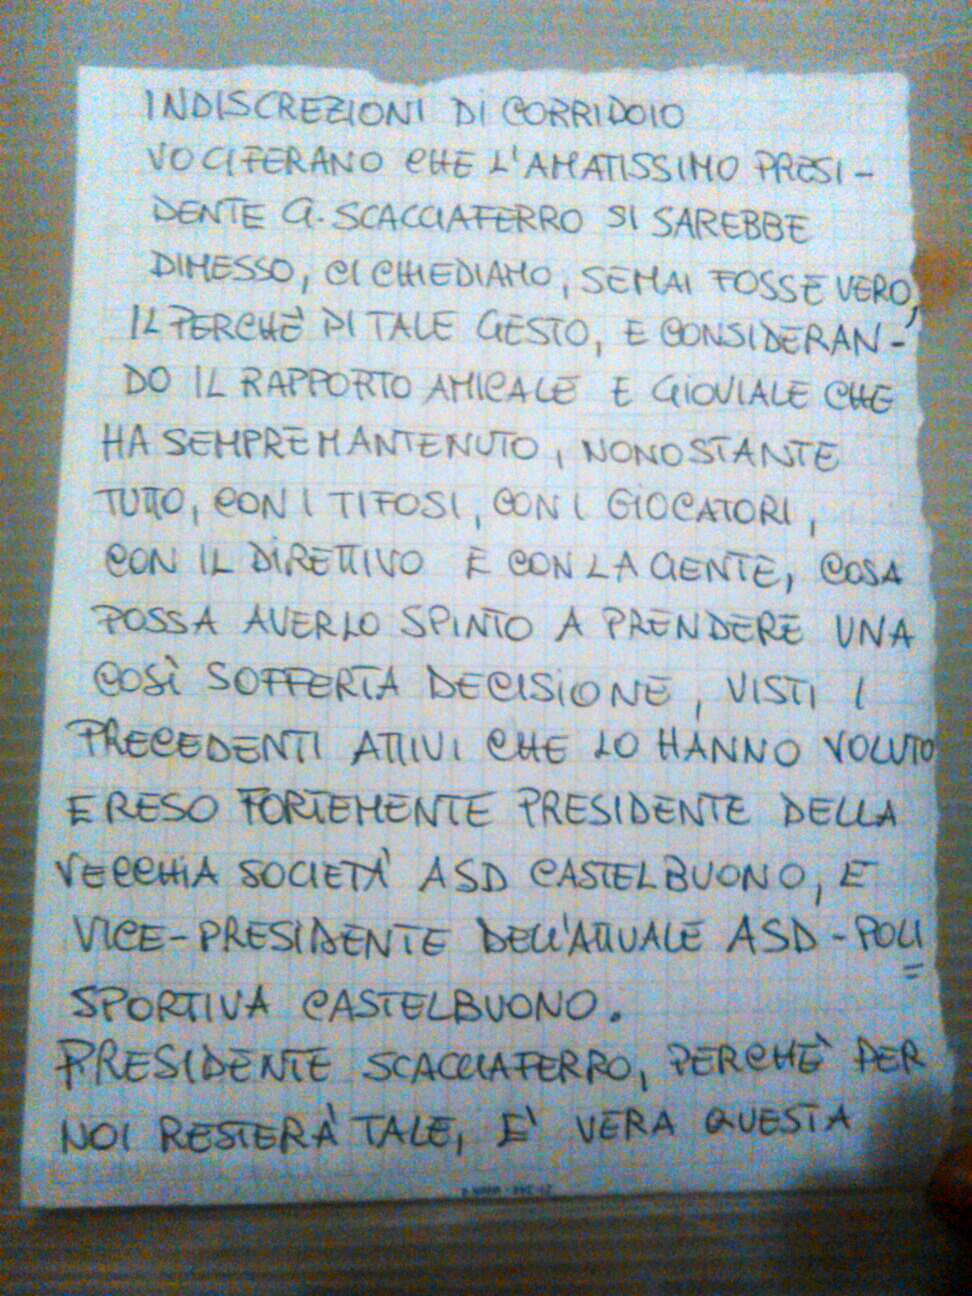 INDISCREZIONI DI CORRIDOIO
VOCIFERANO CHE L'AMATISSIMO PRESI-
DENTE G. SCACCIAFERRO SI SAREBBE
DIMESSO, CI CHIEDIAMO, SEMAI FOSSE VERO,
IL PERCHÈ DI TALE GESTO, E CONSIDERAN-
DO IL RAPPORTO AMICALE E GIOVIALE CHE
HA SEMPRE MANTENUTO, NONOSTANTE
TUTTO, CON I TIFOSI, CON I GIOCATORI,
CON IL DIRETTIVO E CON LA GENTE, COSA
POSSA AVERLO SPINTO A PRENDERE UNA
COSÌ SOFFERTA DECISIONE, VISTI I
PRECEDENTI ATTIVI CHE LO HANNO VOLUTO
E RESO FORTEMENTE PRESIDENTE DELLA
VECCHIA SOCIETÀ ASD CASTELBUONO, E
VICE-PRESIDENTE DELL'ATTUALE ASD-POLI
=
SPORTIVA CASTELBUONO.
PRESIDENTE SCACCIAFERRO, PERCHÈ PER
NOI RESTERÀ TALE, E' VERA QUESTA